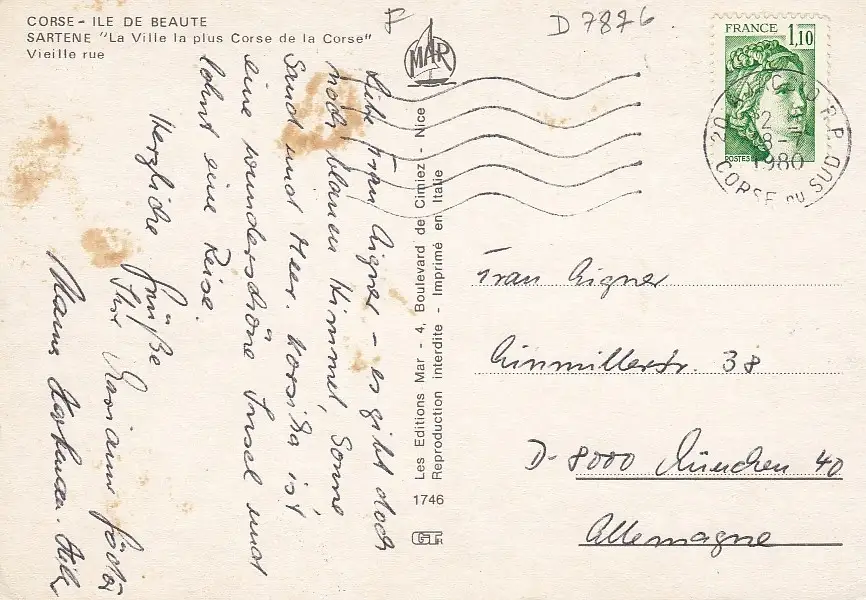 CORSE - ILE DE BEAUTE
SARTENE "La Ville la plus Corse de la Corse"
Vieille rue
F
D 7876
MAR
FRANCE
1,10
POSTES
20
R.P.
CORSE DU SUD
1980
Liebe Frau Aigner - es gibt doch
noch blauen Himmel, Sonne
Sand und Meer. Korsika ist
eine wunderschöne Insel und
lohnt eine Reise.
Herzliche Grüße
Ihre Mariann
Les Editions Mar - 4, Boulevard de Cimiez - Nice
Reproduction interdite - Imprimé en Italie
1746
Frau Aigner
Ainmillerstr. 38
D-8000 München 40
Allemagne